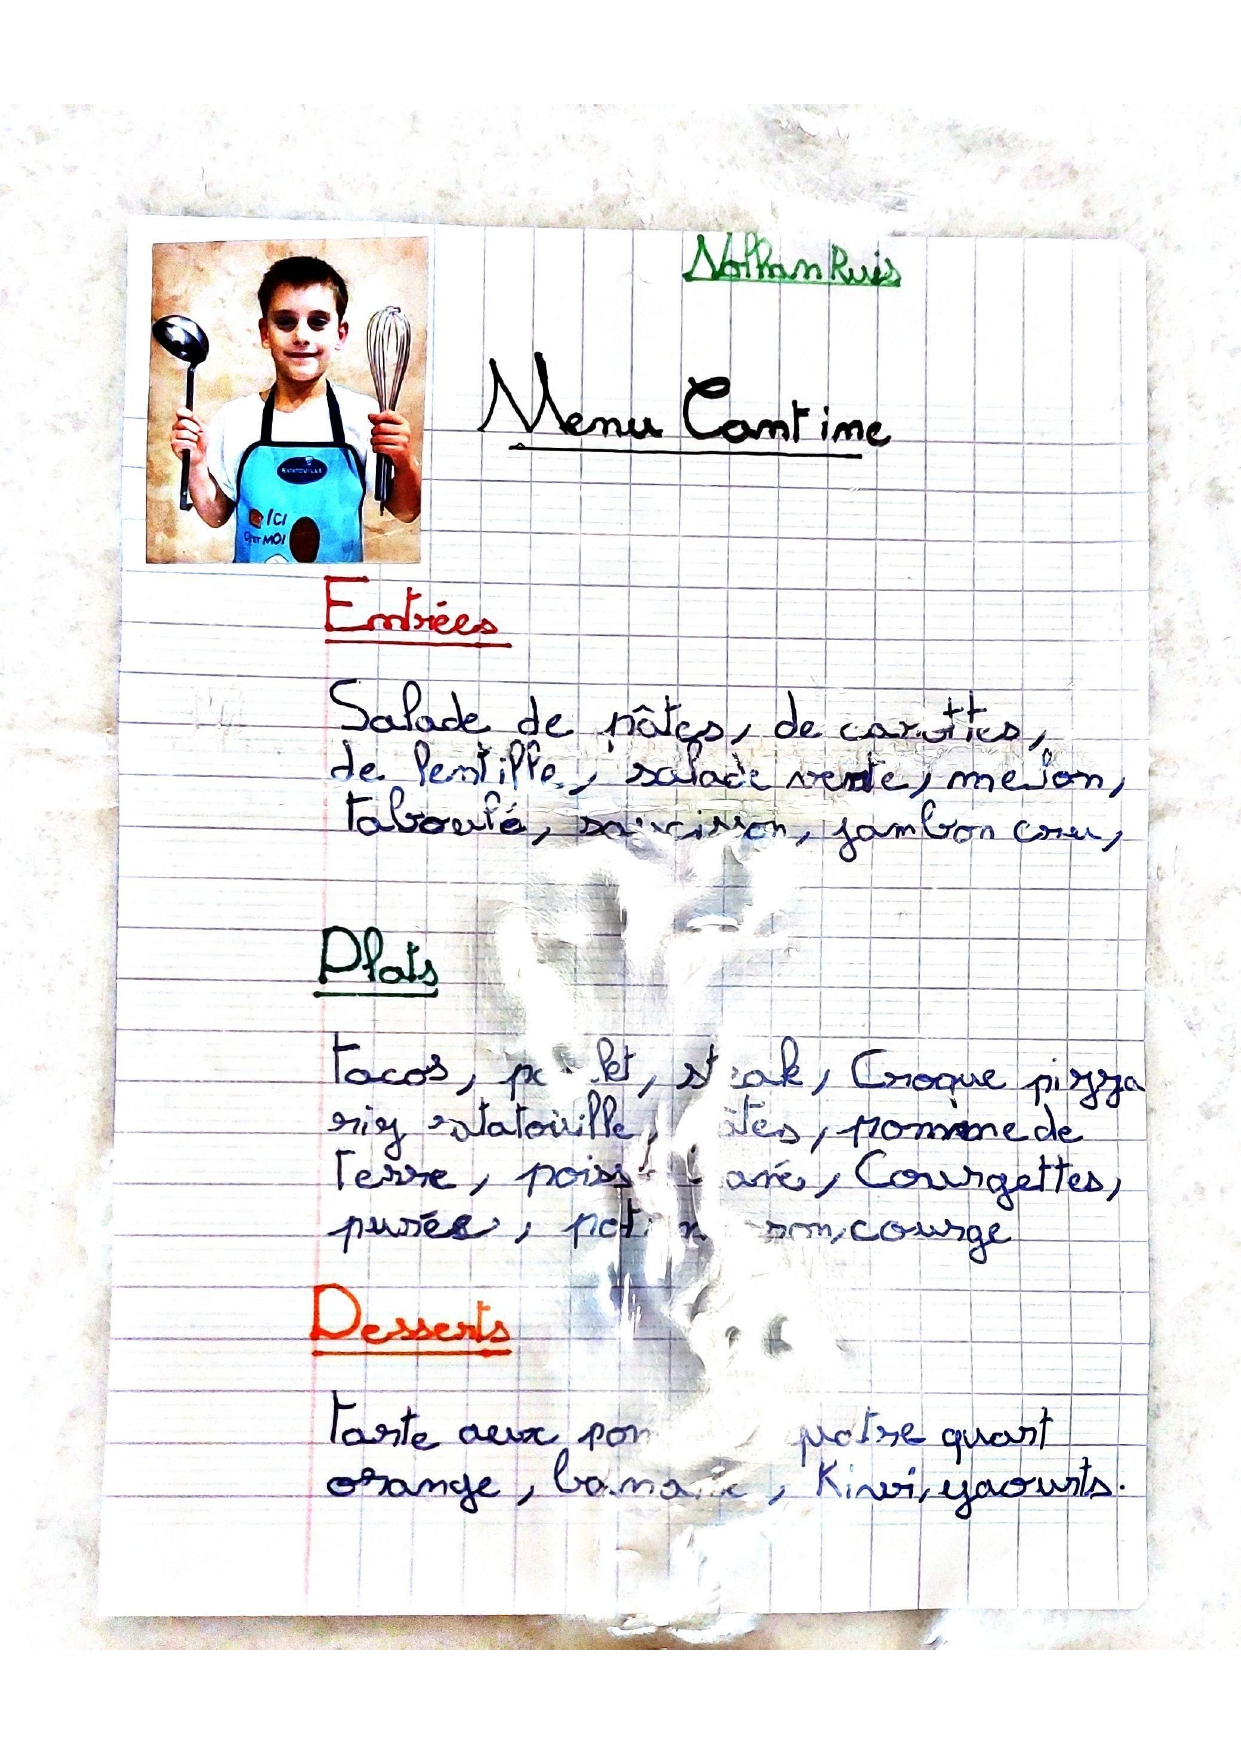 Nathan Ruis
Menu Cantine
RATATOUILLE
ICI
C'EST MOI
Entrées
Salade de pâtes, de carottes,
de lentille, salade verte, melon,
taboulé, saucisson, jambon cru,
Plats
Tacos, steak, Croque pizza
riz ratatouille, pomme de
Terre, Courgettes,
purée, courge
Desserts
Tarte aux quatre quart
orange, Kiwi, yaourts.